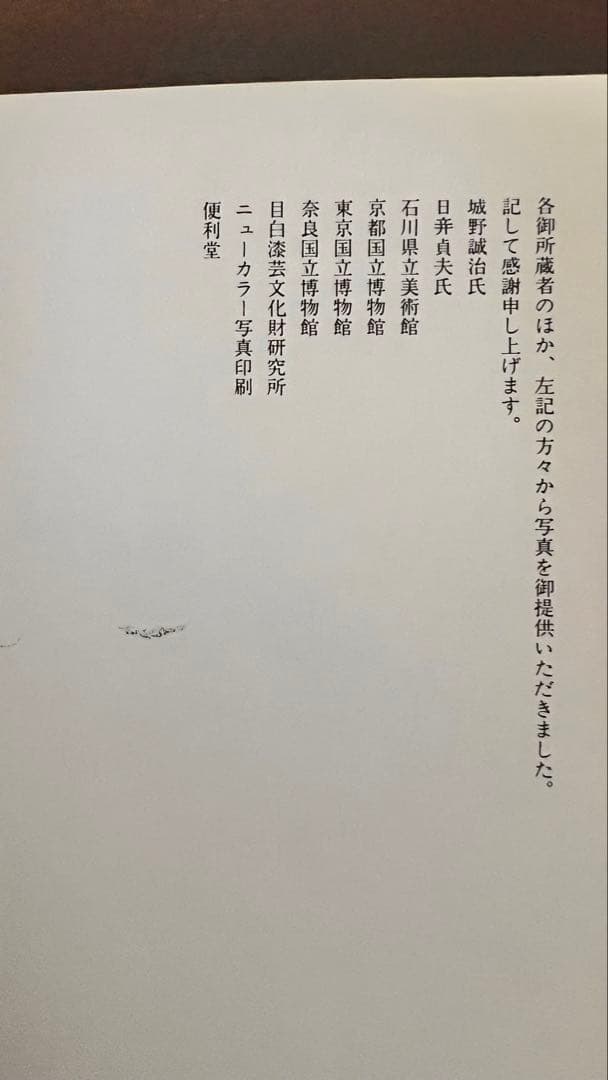 各御所蔵者のほか、左記の方々から写真を御提供いただきました。
記して感謝申し上げます。
城野誠治氏
日弉貞夫氏
石川県立美術館
京都国立博物館
東京国立博物館
奈良国立博物館
目白漆芸文化財研究所
ニューカラー写真印刷
便利堂